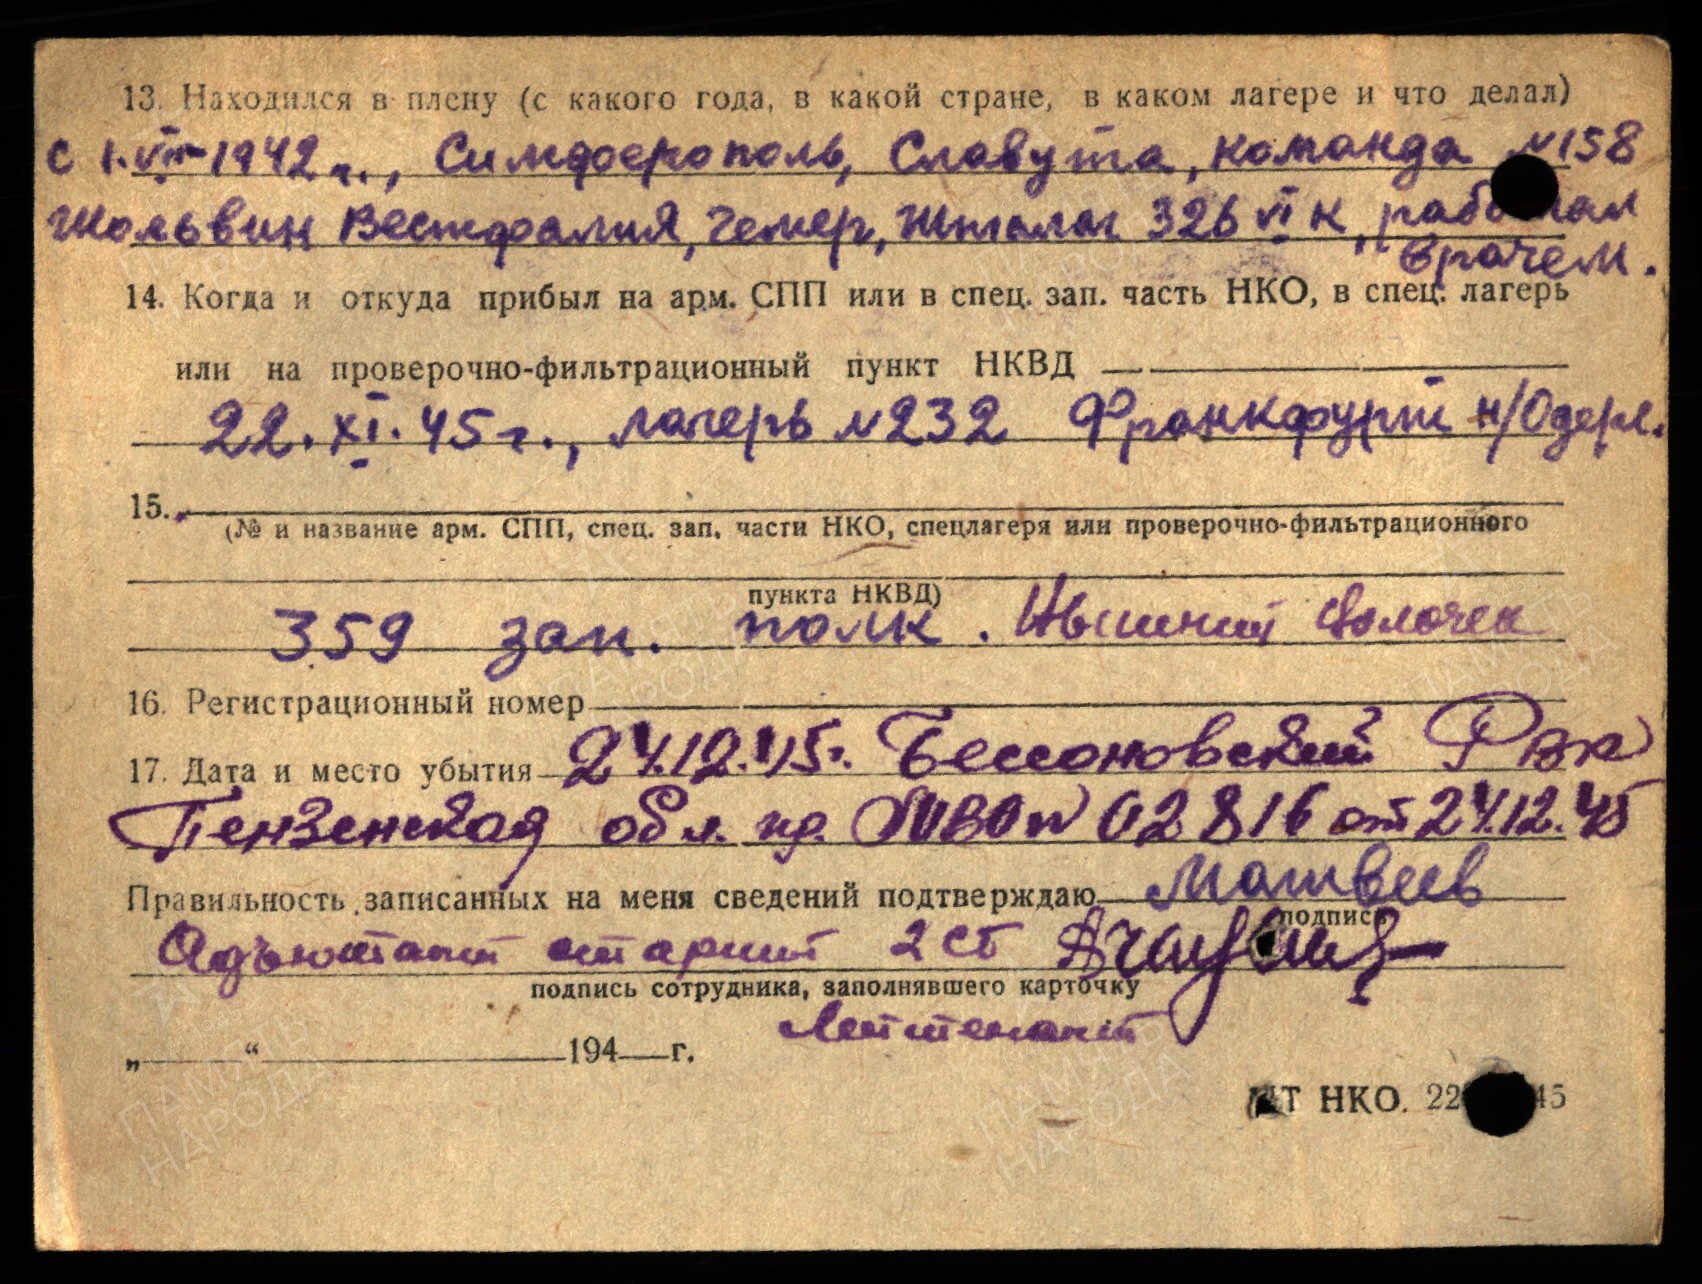 13. Находился в плену (с какого года, в какой стране, в каком лагере и что делал)
с 1.VII-1942 г., Симферополь, Славута, команда №158
Жольвин Вестфалия, Гемер, Шталаг 326 VI К, работал
врачем.
14. Когда и откуда прибыл на арм. СПП или в спец. зап. часть НКО, в спец. лагерь
или на проверочно-фильтрационный пункт НКВД
22.XI.45 г., лагерь №232 Франкфурт н/Одере.
15.
(№ и название арм. СПП, спец. зап. части НКО, спецлагеря или проверочно-фильтрационного
пункта НКВД)
359 зап. полк. Вышний Волочек
16. Регистрационный номер
17. Дата и место убытия 24.12.45г. Бессоновский РВК
Пензенская обл. 02816 от 24.12.45
Правильность записанных на меня сведений подтверждаю Матвеев
подпись
Адъютант старший 2 сб
подпись сотрудника, заполнявшего карточку
Лейтенант
„ “ 194 г.
Т НКО. 22 45
ПАМЯТЬ НАРОДА